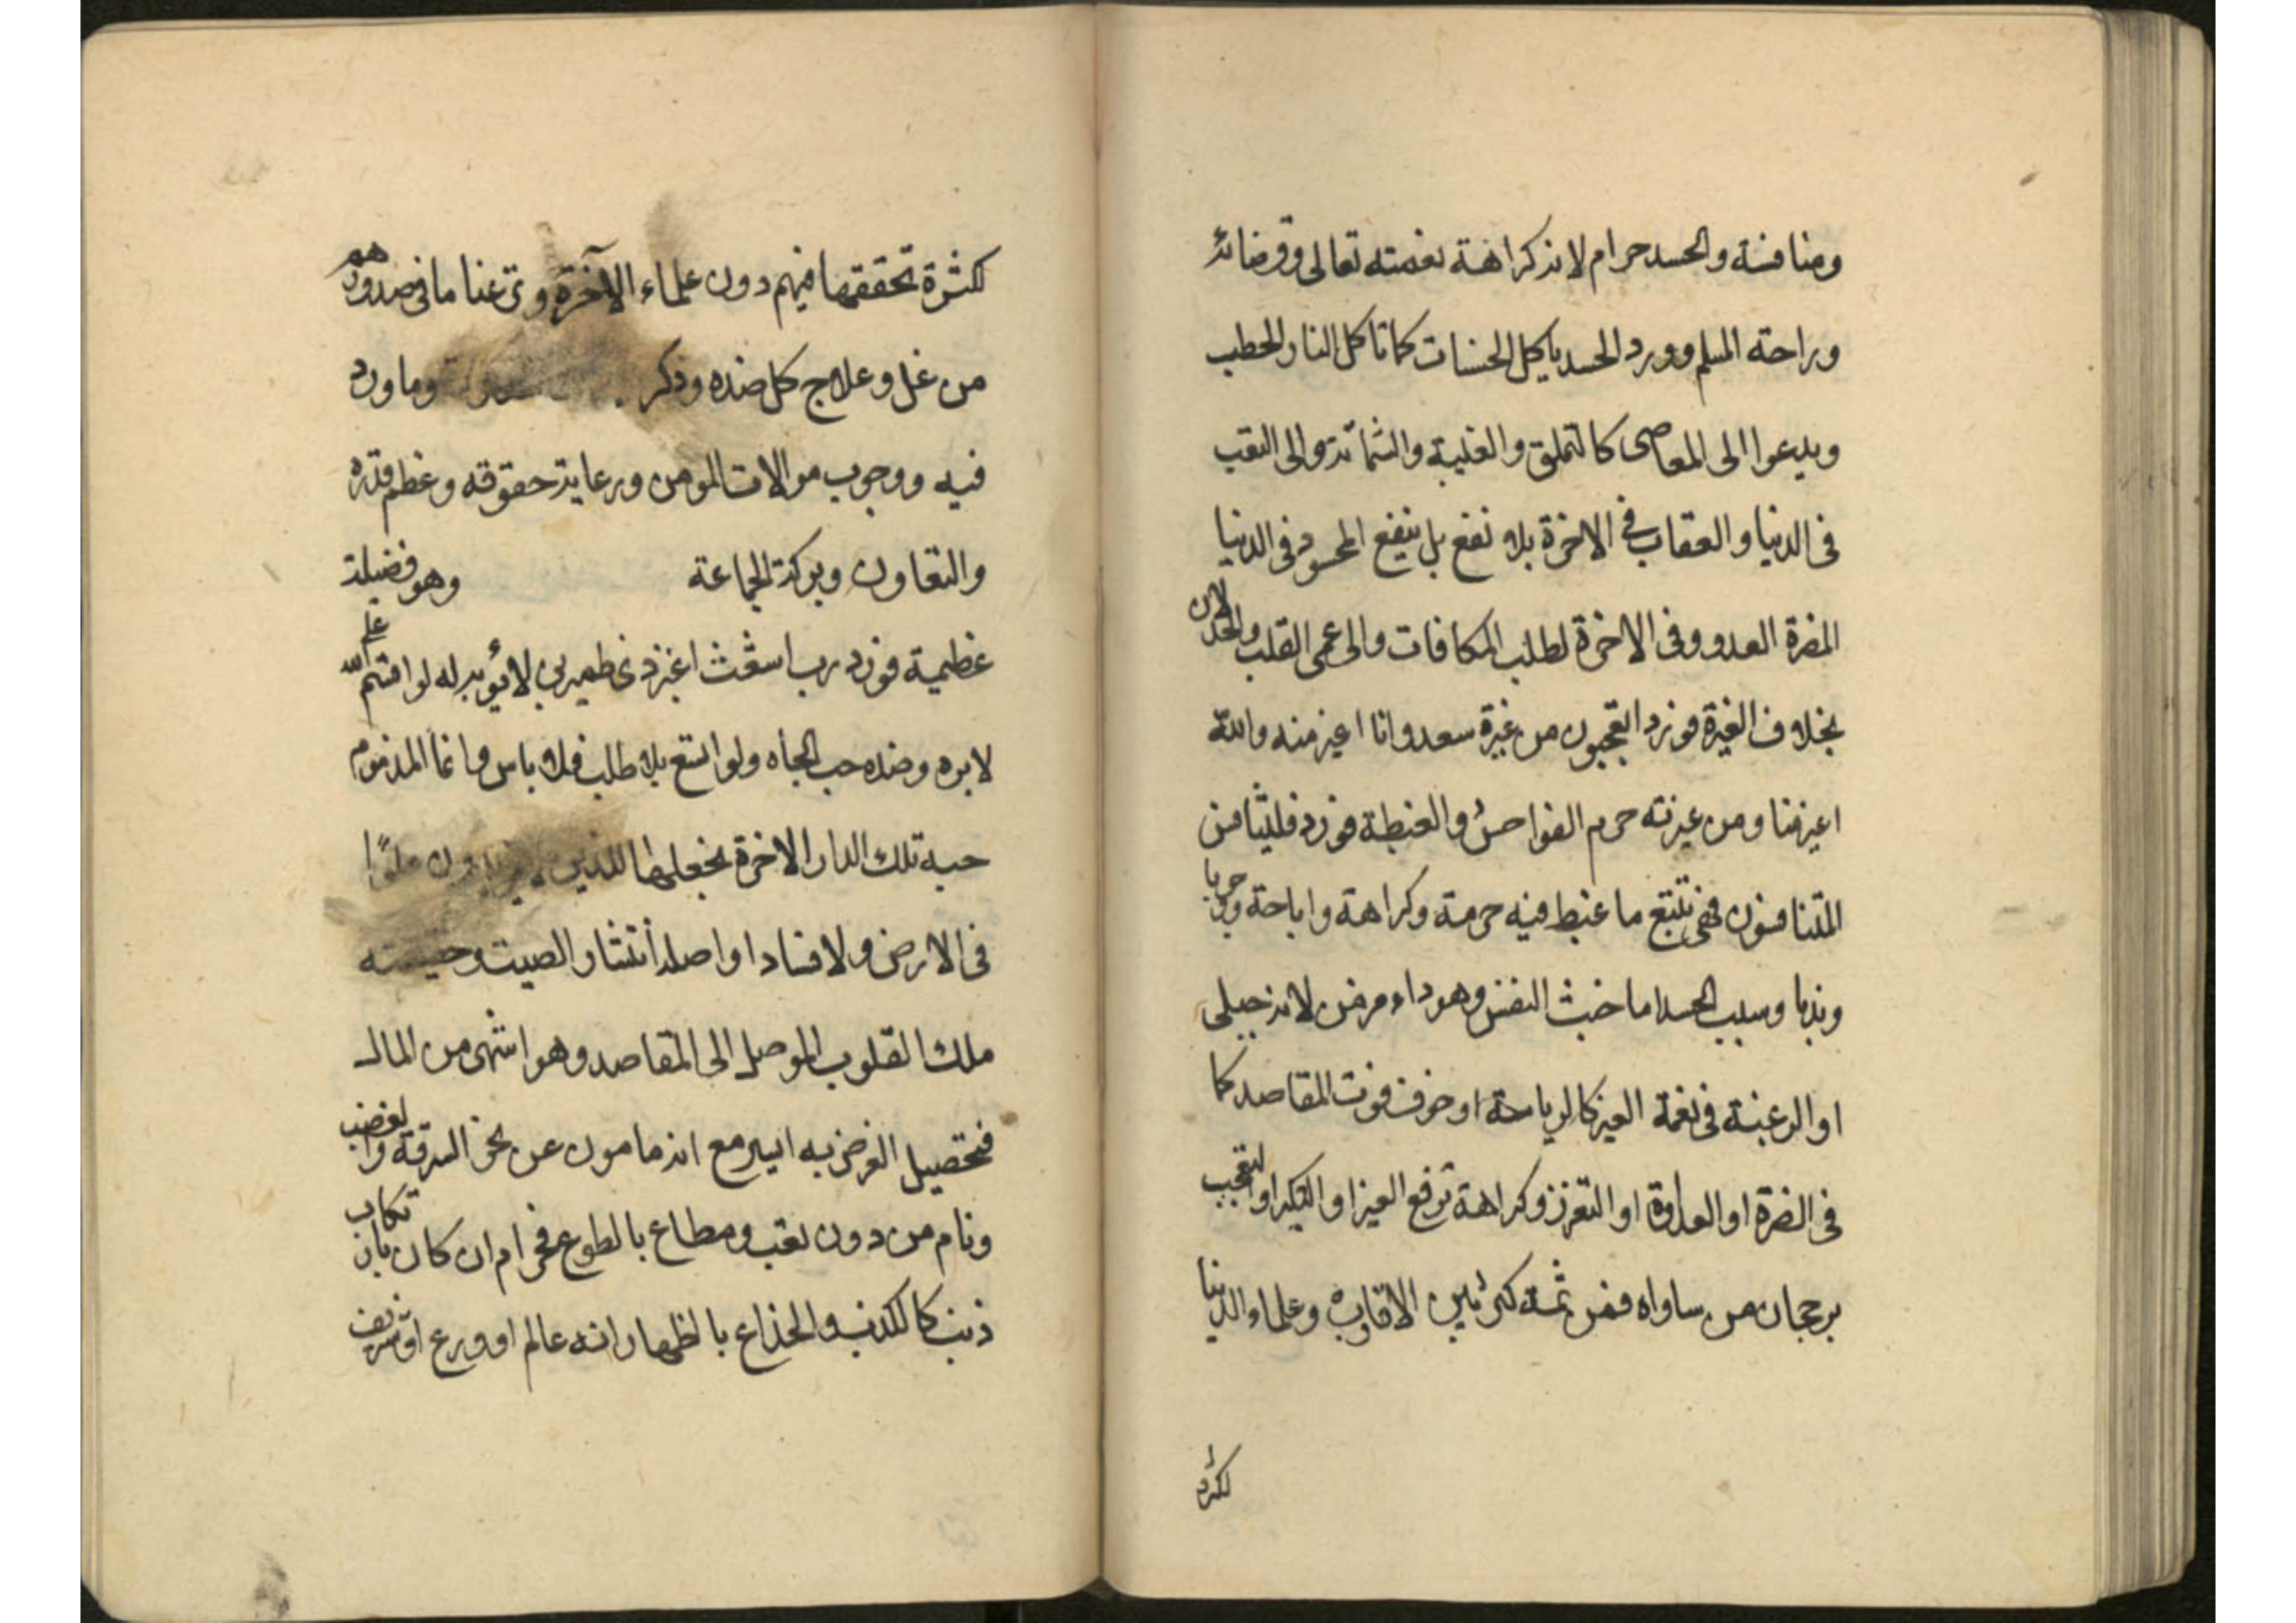 ومنافسة والحسد حرام لانه كراهة نعمته تعالى وقضائه
وراحة المسلم وورد الحسد ياكل الحسنات كما تاكل النار الحطب
ويدعوا الى المعاصى كالتملق والغيبة والشماتة والى التعب
فى الدنيا والعقاب فى الاخرة بلا نفع بل ينفع المحسود فى الدنيا
المضرة العدو وفى الاخرة لطلب المكافات والى عمى القلب والخذلان
بخلاف الغيرة فورد اتعجبون من غيرة سعد وانا اغير منه والله
اغير منا ومن غيرته حرم الفواحش والغبطة فورد فليتنافس
المتنافسون فهى تتبع ما غبط فيه حرمة وكراهة واباحة وجوبا
وندبا وسبب الحسد اما خبث النفس وهو داء مرض لانه جبلى
او الرغبة فى نعمة الغير كالرياسة او خوف فوت المقاصد كما
فى الضرة او العداوة او التعزز وكراهة ترفع الغير او التكبر او التعجب
برجحان من ساواه فمن ثمة كثر بين الاقارب وعلماء الدنيا
لكثرة
لكثرة تحققها فيهم دون علماء الآخرة ونزعنا ما فى صدورهم
من غل وعلاج كل ضده وذكر وما ورد
فيه ووجوب موالات المومن ورعاية حقوقه وعظم قدره
والتعاون وبركة الجماعة وهو فضيلة
عظيمة فورد رب اشعث اغبر ذى طمرين لا يؤبه له لو اقسم على الله
لابره وضده حب الجاه ولو اتسع بلا طلب فلا باس وانما المذموم
حبه تلك الدار الاخرة نجعلها للذين لا يريدون علوًا
فى الارض ولا فسادا واصله انتشار الصيت وحقيقته
ملك القلوب الموصل الى المقاصد وهو اشهى من المال
فتحصيل الغرض به ايسر مع انه مامون عن نحو السرقة والغضب
ونام من دون تعب ومطاع بالطوع فحرام ان كان بارتكاب
ذنب كالكذب والخداع بالظهار انه عالم او ورع او شريف